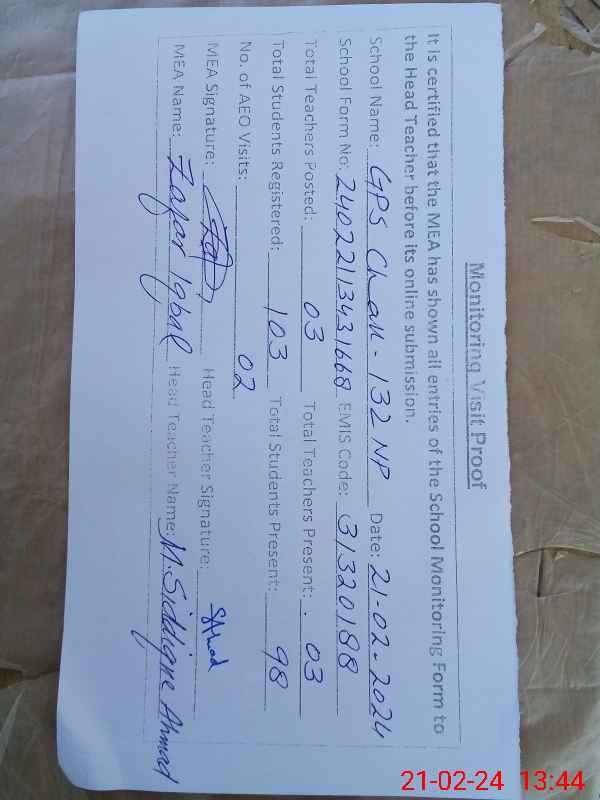 Monitoring Visit Proof
It is certified that the MEA has shown all entries of the School Monitoring Form to
the Head Teacher before its online submission.
School Name: GPS Chak - 132 NP Date: 21-02-2024
School Form No: 24022113431668 EMIS Code: 31320188
Total Teachers Posted: 03 Total Teachers Present: 03
Total Students Registered: 103 Total Students Present: 98
No. of AEO Visits: 02
MEA Signature: Head Teacher Signature: SAhad
MEA Name: Zafar Iqbal Head Teacher Name: M. Siddique Ahmad
21-02-24 13:44